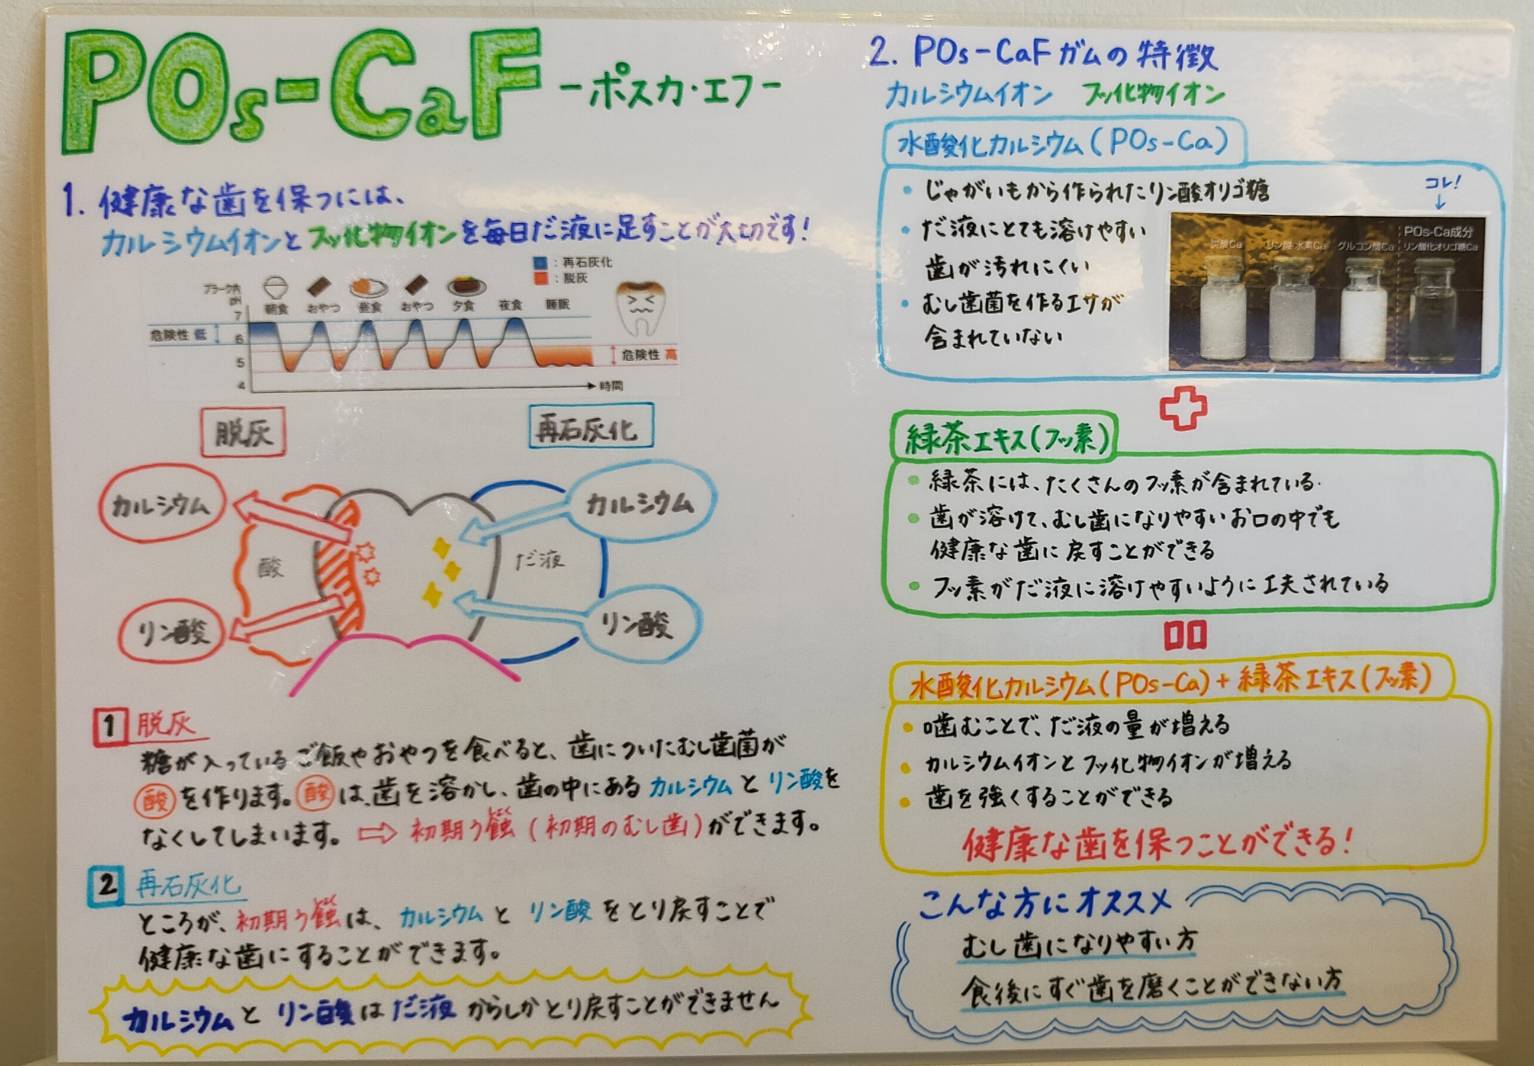 POs-CaF -ポスカ・エフ-
1. 健康な歯を保つには、
カルシウムイオンとフッ化物イオンを毎日だ液に足すことが大切です!
:再石灰化
:脱灰
プラーク内
pH
朝食 おやつ 昼食 おやつ 夕食 夜食 睡眠
7
危険性 低
6
5
危険性 高
4
時間
脱灰
再石灰化
カルシウム
カルシウム
酸
だ液
リン酸
リン酸
1 脱灰
糖が入っているご飯やおやつを食べると、歯についたむし歯菌が
酸を作ります。酸は、歯を溶かし、歯の中にあるカルシウムとリン酸を
なくしてしまいます。⇨初期う蝕(初期のむし歯)ができます。
2 再石灰化
ところが、初期う蝕は、カルシウムとリン酸をとり戻すことで
健康な歯にすることができます。
カルシウムとリン酸はだ液からしかとり戻すことができません
2. POs-CaFガムの特徴
カルシウムイオン フッ化物イオン
水酸化カルシウム(POs-Ca)
・じゃがいもから作られたリン酸オリゴ糖
・だ液にとても溶けやすい
歯が汚れにくい
・むし歯菌を作るエサが
含まれていない
コレ!
↓
POs-Ca成分
炭酸Ca リン酸-水素Ca グルコン酸Ca リン酸化オリゴ糖Ca
+
緑茶エキス(フッ素)
・緑茶には、たくさんのフッ素が含まれている.
・歯が溶けて、むし歯になりやすいお口の中でも
健康な歯に戻すことができる
・フッ素がだ液に溶けやすいように工夫されている
水酸化カルシウム(POs-Ca)+緑茶エキス(フッ素)
・噛むことで、だ液の量が増える
・カルシウムイオンとフッ化物イオンが増える
・歯を強くすることができる
健康な歯を保つことができる!
こんな方にオススメ
むし歯になりやすい方
食後にすぐ歯を磨くことができない方